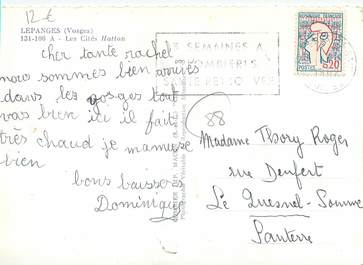 12 €
LEPANGES (Vosges)
131-106 A - Les Cités Hatton
cher tante rachel
nous sommes bien arrivés
dans les vosges tout
vas bien ici il fait
très chaud je m'amuse
bien
bons baisers
Dominique
3 SEMAINES A
PLOMBIERS
REPUBLIQUE FRANCAISE
POSTES 0,20
88
Madame Thory Roger
rue Denfert
Le Quesnel-Somme
Santerre